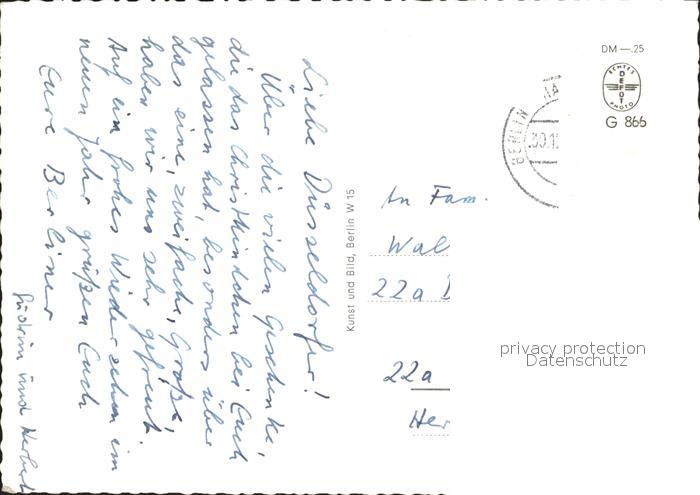 Liebe Düsseldorfer!
Über die vielen Geschenke,
die das Christkindchen bei Euch
gelassen hat, besonders über
das eine, zweifache, Große,
haben wir uns sehr gefreut.
Auf ein frohes Wiedersehen im
neuen Jahr grüßen Euch
Eure Berliner
und Herbert
Kunst und Bild, Berlin W 15
DM —.25
ECHTES
DEFOT
PHOTO
G 866
BERLIN
30.12
An Fam.
Wal
22a
22a
Her
privacy protection
Datenschutz